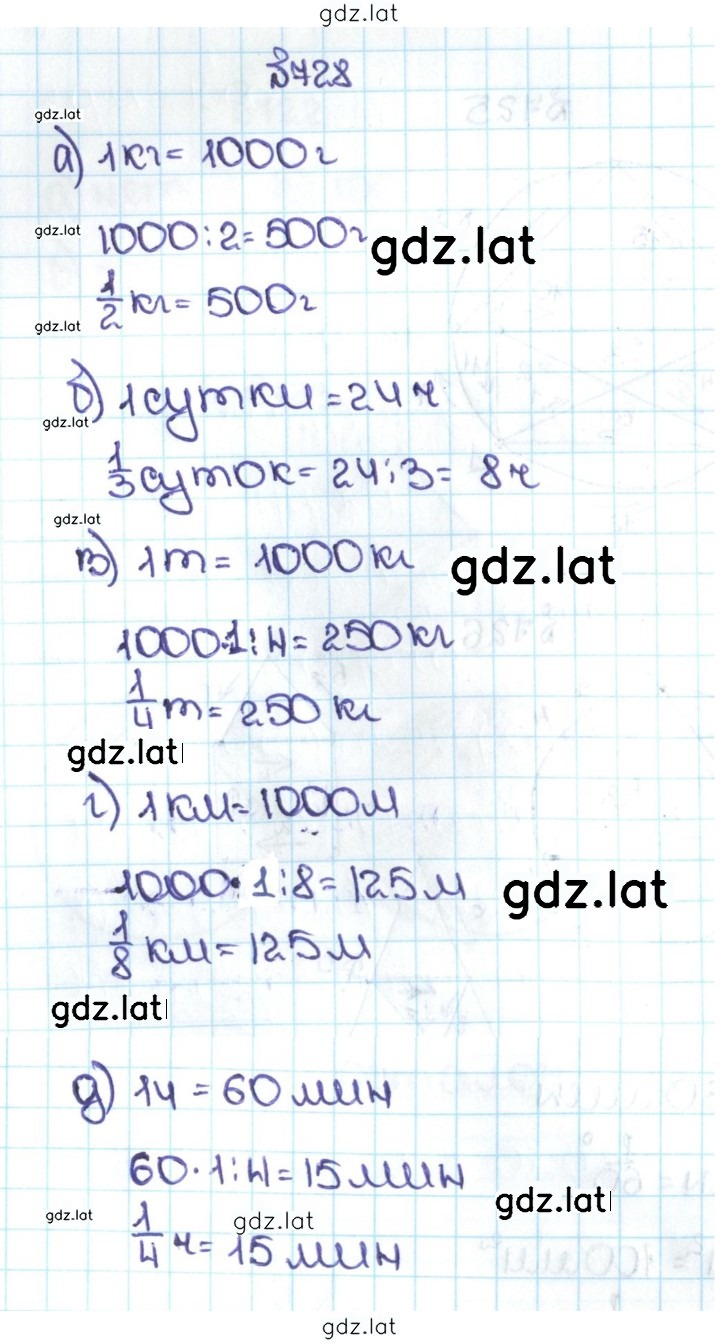 gdz.lat
В728
gdz.lat
а) 1кг = 1000г
gdz.lat
1000:2= 500г
gdz.lat
1/2 кг= 500г
gdz.lat
б) 1сутки = 24ч
gdz.lat
1/3 суток= 24:3= 8ч
gdz.lat
в) 1т= 1000кг
gdz.lat
1000·1:4= 250кг
1/4 т= 250 кг
gdz.lat
г) 1км= 1000м
1000·1:8= 125м
gdz.lat
1/8 км= 125м
gdz.lat
д) 1ч = 60 мин
60·1:4= 15мин
gdz.lat
gdz.lat
gdz.lat
1/4 ч= 15 мин
gdz.lat